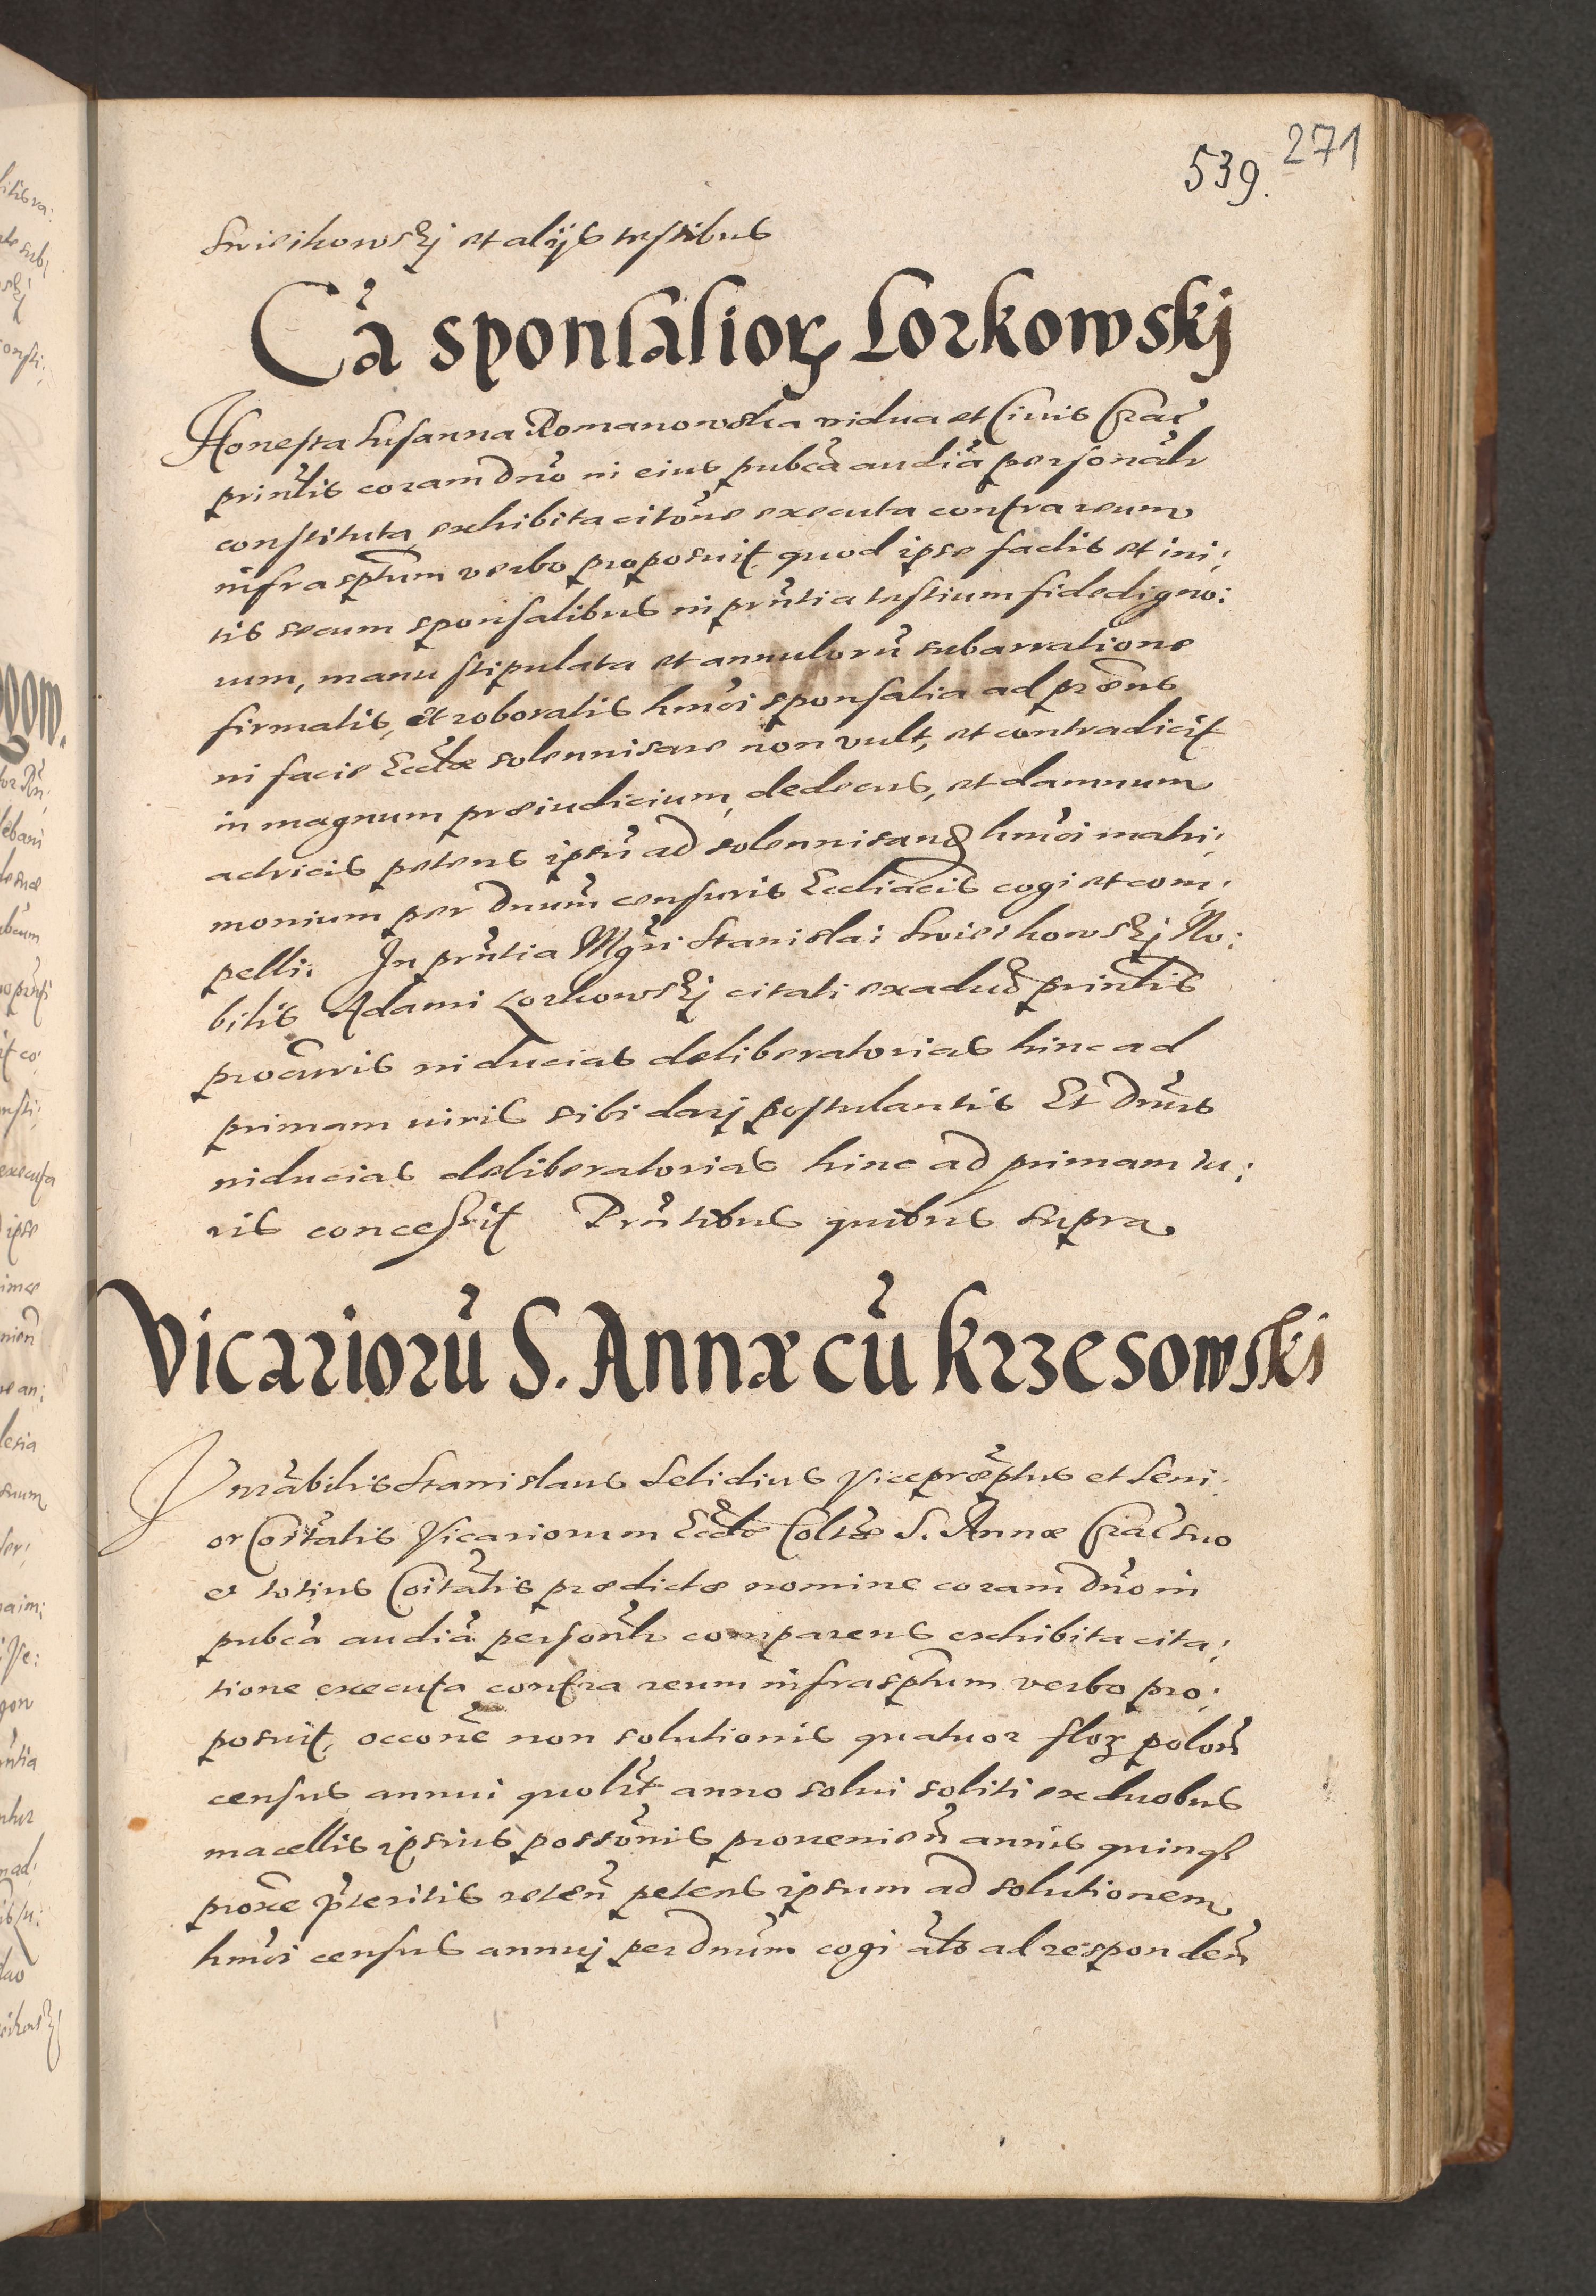 539. 271
Swieikowskj et alijs testibus
Cã sponsalioꝝ Lorkowskj
Honesta Susanna Romanowska vidua et Civis Crac̃
prinĉlis coram Dño in eius pubcâ audiã personalr̃
constituta, exhibita citoñe executa contra reum
infrasptum verbo proposuit, quod ipse factis et ini:
tis secum sponsalibus in prñtia testium fidedigno:
rum, manu stipulata et annulorũ subarratione
firmatis, et roboratis hmõi sponsalia ad præns
in facie Ecclæ solennisare non vult, et contradicit
in magnum præiudicium, dedecus, et damnum
actricis petens ipsũ ad solennisanđ hmõi matri:
monium per Dnum̃ censuris Eccliacis cogi et com:
pelli. In prñtia Mgr̃i Stanislai Swieikowskj No:
bilis Adami Lorkowskj citati ex aduo prinĉlis
procũris inducias deliberatorias hinc ad
primam iuris sibi darj postulantis Et Dnũs
inducias deliberatorias hinc ad primam iu:
ris concessit Prñtibus quibus supra
Vicariorũ S. Annæ cũ Krzesowski
Vnrãbilis Stanislaus Selidius Viceprææptus et Seni:
or Coitãtis Vicariorum Ecclæ Coltæ S. Annæ Crac̃ suo
et totius Coitãtis prædictæ nomine coram Dño in
pubcâ audiã personlr̃ comparens exhibita cita:
tione executa contra reum infrasptum verbo pro:
posuit, occoñe non solutionis quatuor floꝝ poloñ
census annui quolt̃ anno solui soliti ex duobus
macellis ipsius possoñis prouenieñ annis quinqȝ
proxe p̃teritis reteñ petens ipsum ad solutionem
hmõi census annuj per Dnum̃ cogi als̃ ad respondeñ